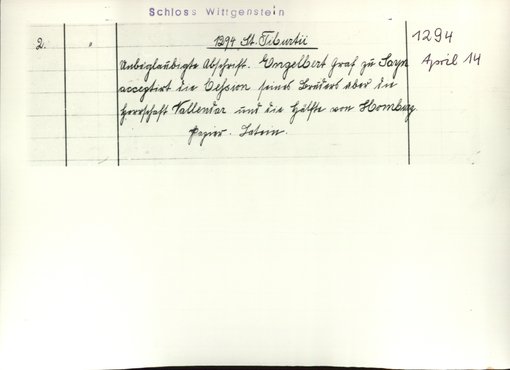 Schloss Wittgenstein
2. " 1294 St. Tiburtii
1294
April 14
Unbeglaubigte Abschrift. Engelbert Graf zu Sayn
acceptirt die Cession seines Bruders über die
Herrschaft Vallendar und die Hälfte von Homburg
Papier. Latein.